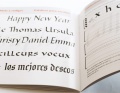 Happy New Year
Thomas Ursula
Christy Daniel Emma
meilleurs voeux
los mejores deseos
x h o